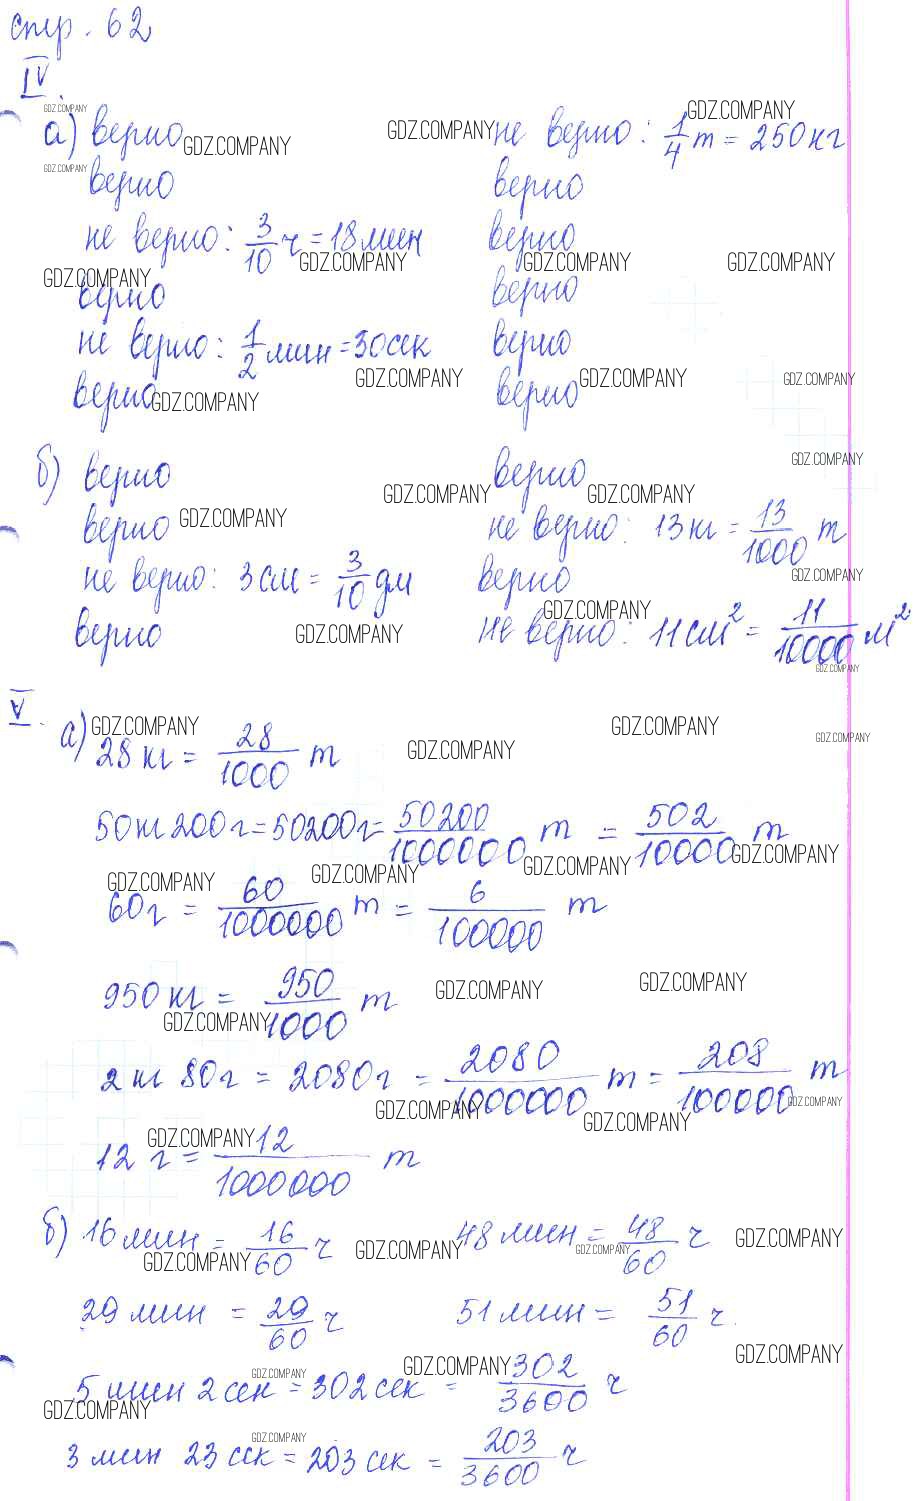 стр. 62
IV.
а) верно не верно: 1/4 т = 250 кг
верно верно
не верно: 3/10 ч = 18 мин верно
верно верно
не верно: 1/2 мин = 30 сек верно
верно верно
б) верно верно
верно не верно: 13 кг = 13/1000 т
не верно: 3 см = 3/10 дм верно
верно не верно: 11 см² = 11/10000 м²
V. а) 28 кг = 28/1000 т
50 кг 200 г = 50200 г = 50200/1000000 т = 502/10000 т
60 г = 60/1000000 т = 6/100000 т
950 кг = 950/1000 т
2 кг 80 г = 2080 г = 2080/1000000 т = 208/100000 т
12 г = 12/1000000 т
б) 16 мин = 16/60 ч 48 мин = 48/60 ч
29 мин = 29/60 ч 51 мин = 51/60 ч.
5 мин 2 сек = 302 сек = 302/3600 ч
3 мин 23 сек = 203 сек = 203/3600 ч
GDZ.COMPANY